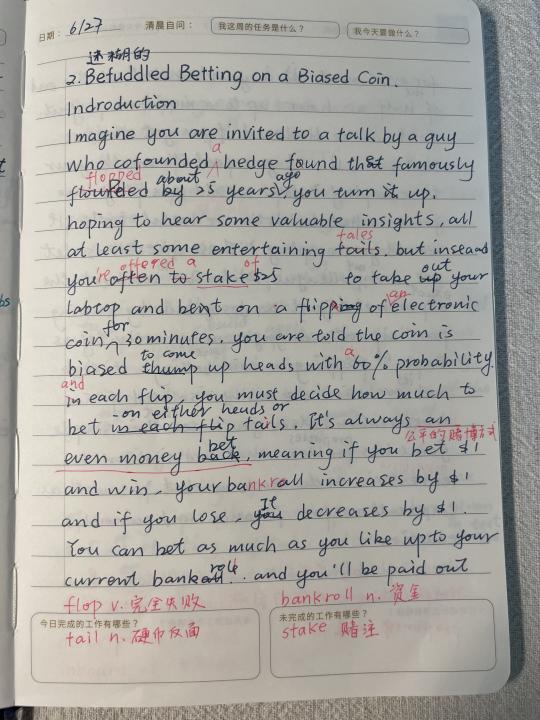 日期： 6/27 清晨自问： 我这周的任务是什么？ 我今天要做什么？
迷糊的
2. Befuddled Betting on a Biased Coin.
Indroduction
Imagine you are invited to a talk by a guy
a
who cofounded hedge found that famously
flopped about ago
by 25 years, you turn it up.
hoping to hear some valuable insights, all
tales
at least some entertaining tails. but insead
're offered a of out
you often to stake $25 to take up your
an
labtop and bent on a flipping of electronic
for
coin 30 minutes. you are told the coin is
to come a
biased thump up heads with 60% probability.
and
in each flip, you must decide how much to
on either heads or
bet in each flip tails. It's always an
公平的赌博方式
bet
even money back, meaning if you bet $1
and win, your bankroll increases by $1
It
and if you lose, you decreases by $1.
You can bet as much as you like up to your
roll
current bank.. and you'll be paid out
flop v. 完全失败 bankroll n. 资金
今日完成的工作有哪些？ 未完成的工作有哪些？
tail n. 硬币反面 stake 赌注